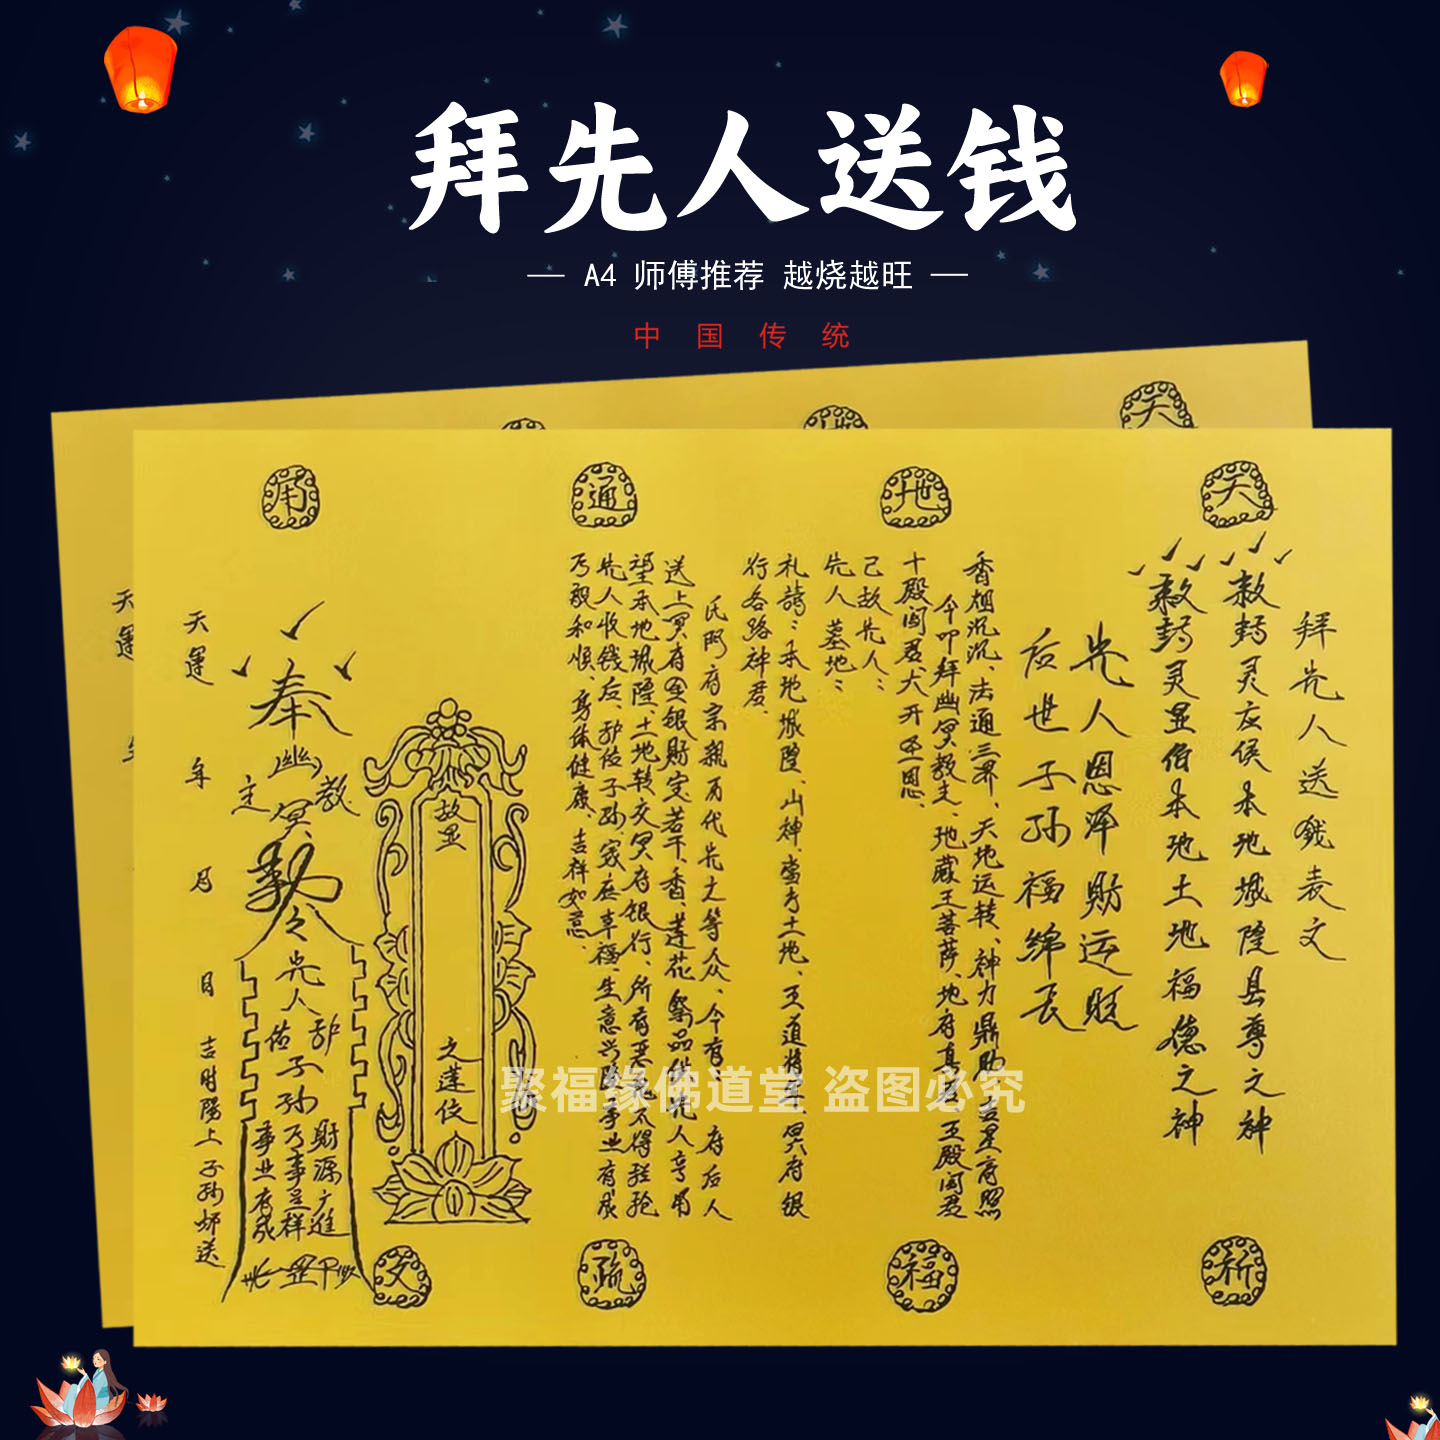 拜先人送钱
A4 师傅推荐 越烧越旺
中国传统
天
地
通
用
拜先人送钱表文
敕封灵应侯本地城隍县尊之神
敕封灵显伯本地土地福德之神
先人恩泽财运旺
后世子孙福绵长
香烟沉沉、法通三界、天地运转、神力鼎助、吉星府照
今叩拜幽冥教主、地藏王菩萨、地府真君、五殿阎君
十殿阎君、大开圣恩、
已故先人：
先人墓地：
礼请：本地城隍、山神、当方土地、五道将军、冥府银
行各路神君、
氏門府宗親历代先之等众、今有： 府后人
送上冥府金银财宝若干、香、莲花祭品供先人享用
望本地城隍、土地转交冥府银行、所有恶鬼不得强抢
先人收钱后、护佑子孙、家庭幸福、生意兴隆、事业有成
万般和顺、身体健康、吉祥如意、
故显
之莲位
奉幽冥教主
勅令先人护佑子孙
财源广進
万事呈祥
事业有成
天運
年
月
日
吉时陽上子孙 送
祈
福
疏
文
天運
聚福缘佛道堂 盗图必究